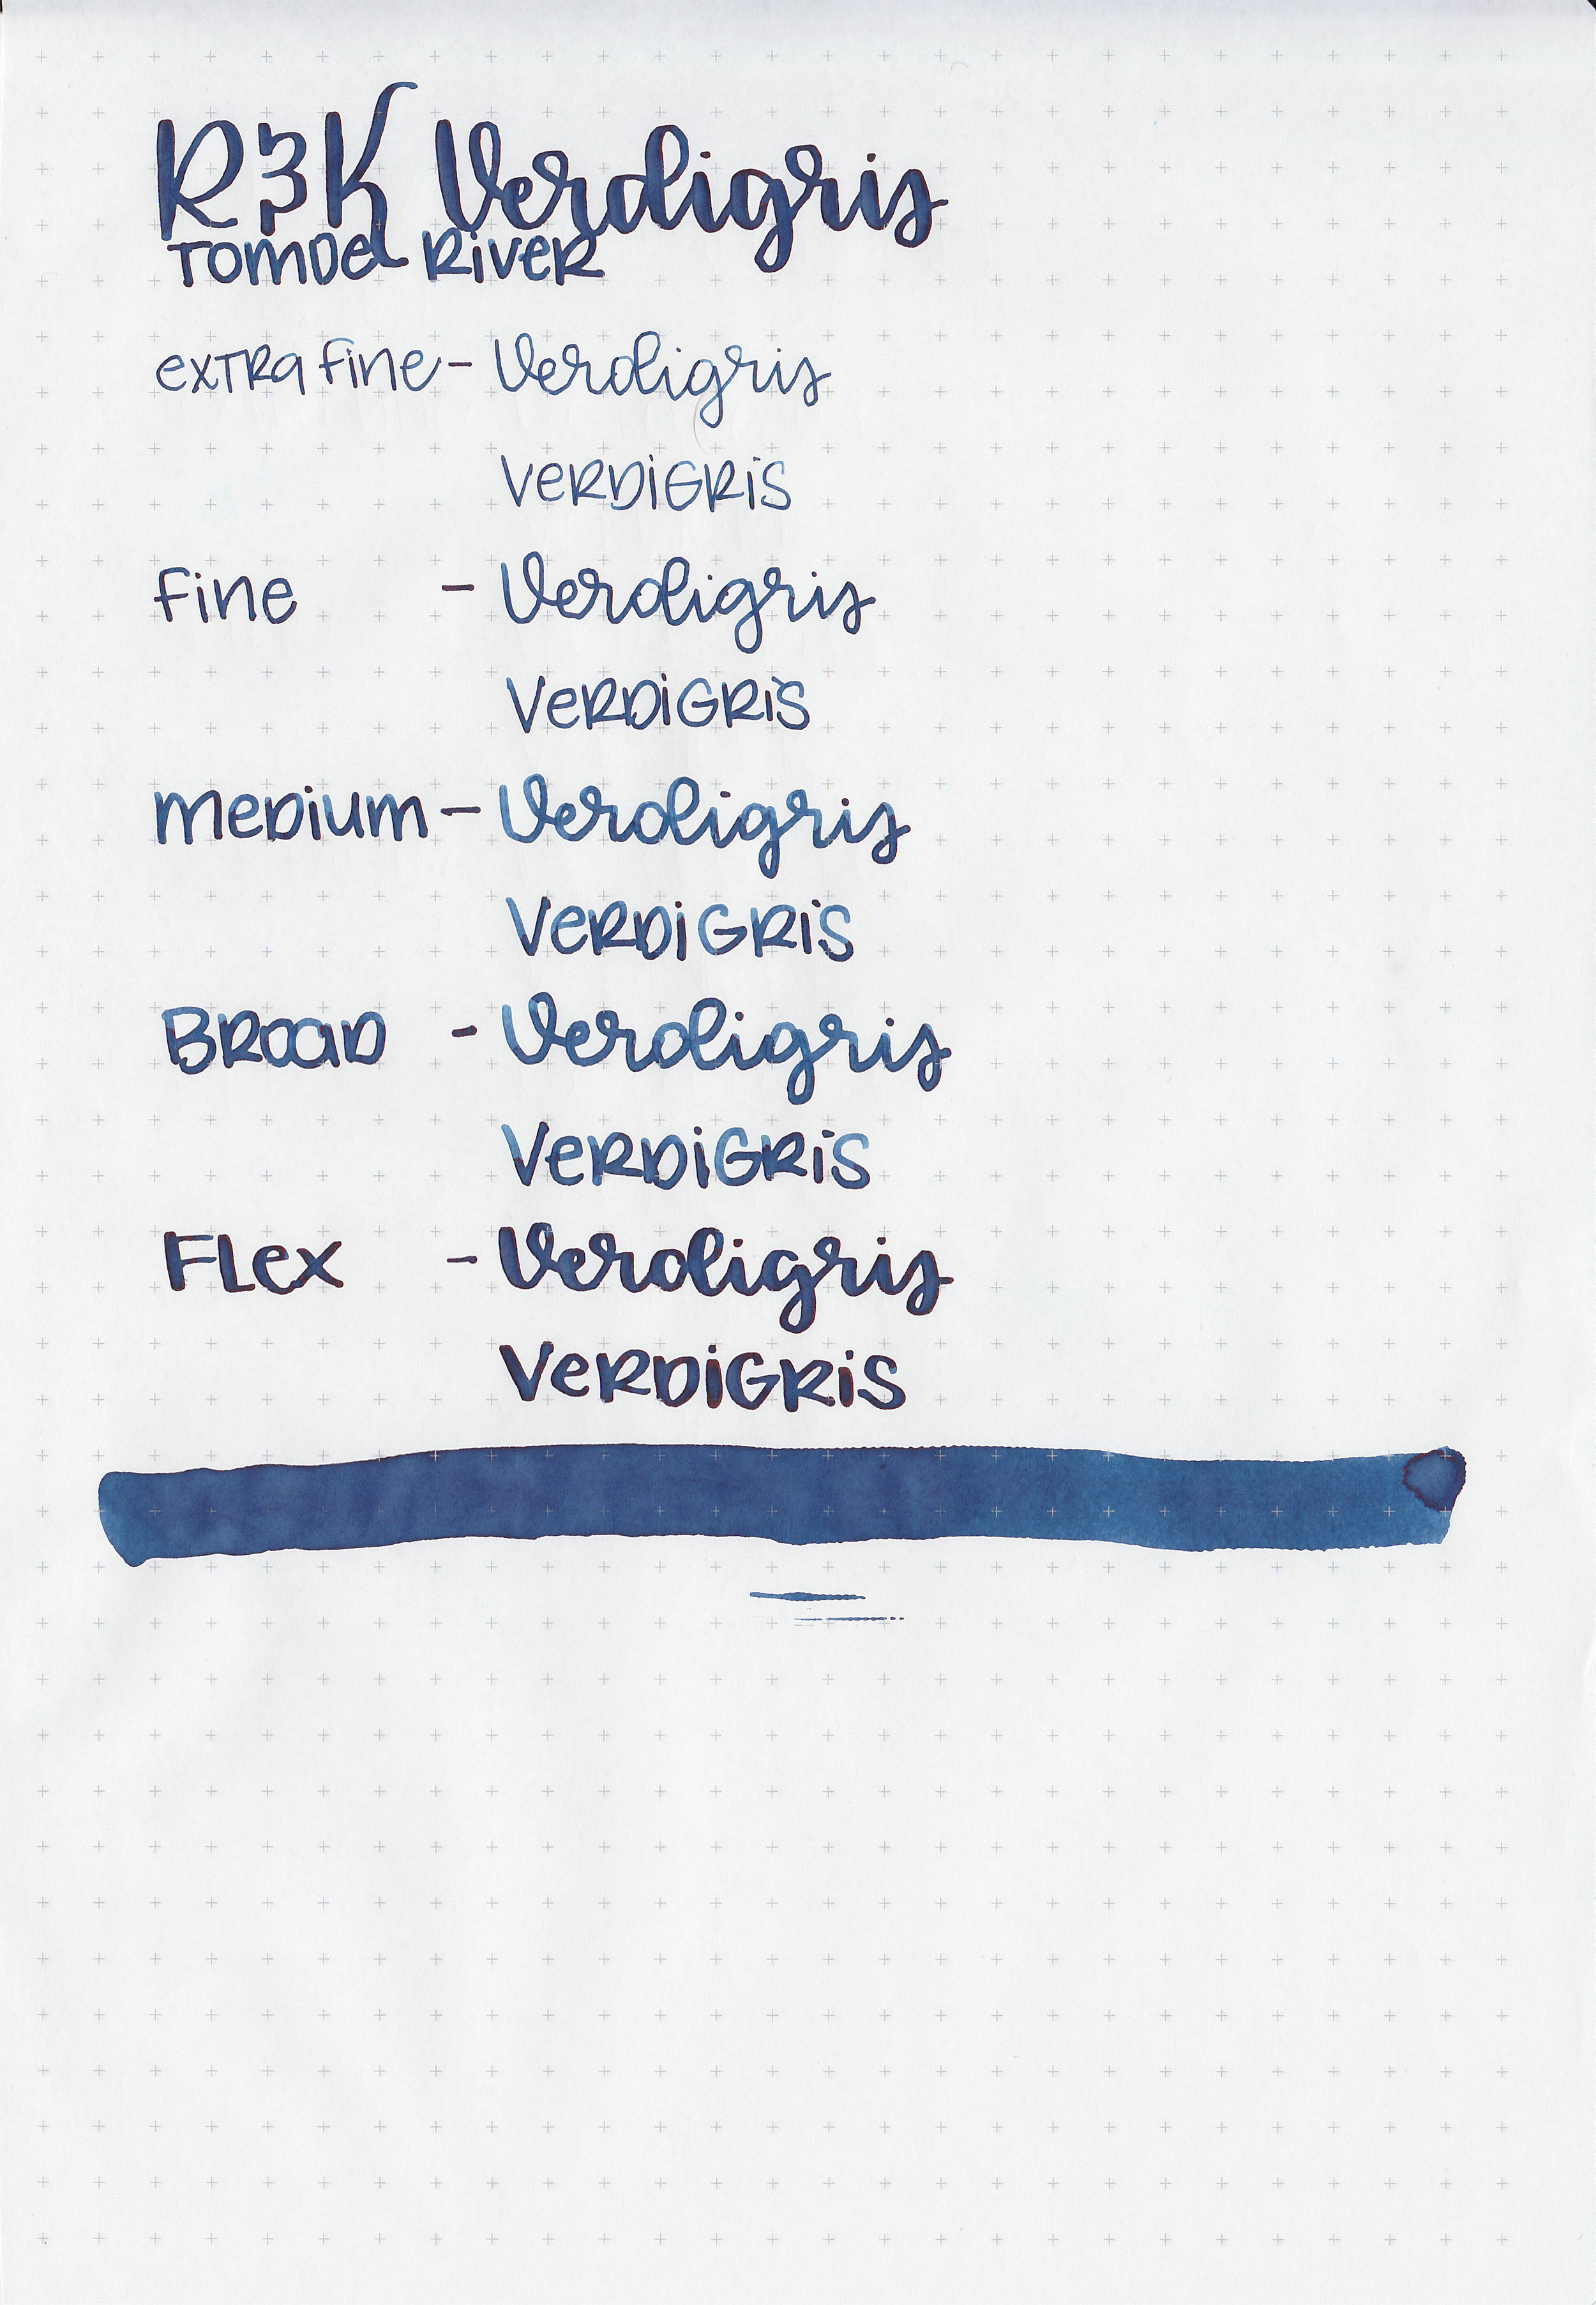 R&K Verdigris
Tomoe River
extra fine - Verdigris
VERDIGRIS
fine - Verdigris
VERDIGRIS
medium - Verdigris
VERDIGRIS
Broad - Verdigris
VERDIGRIS
Flex - Verdigris
VERDIGRIS